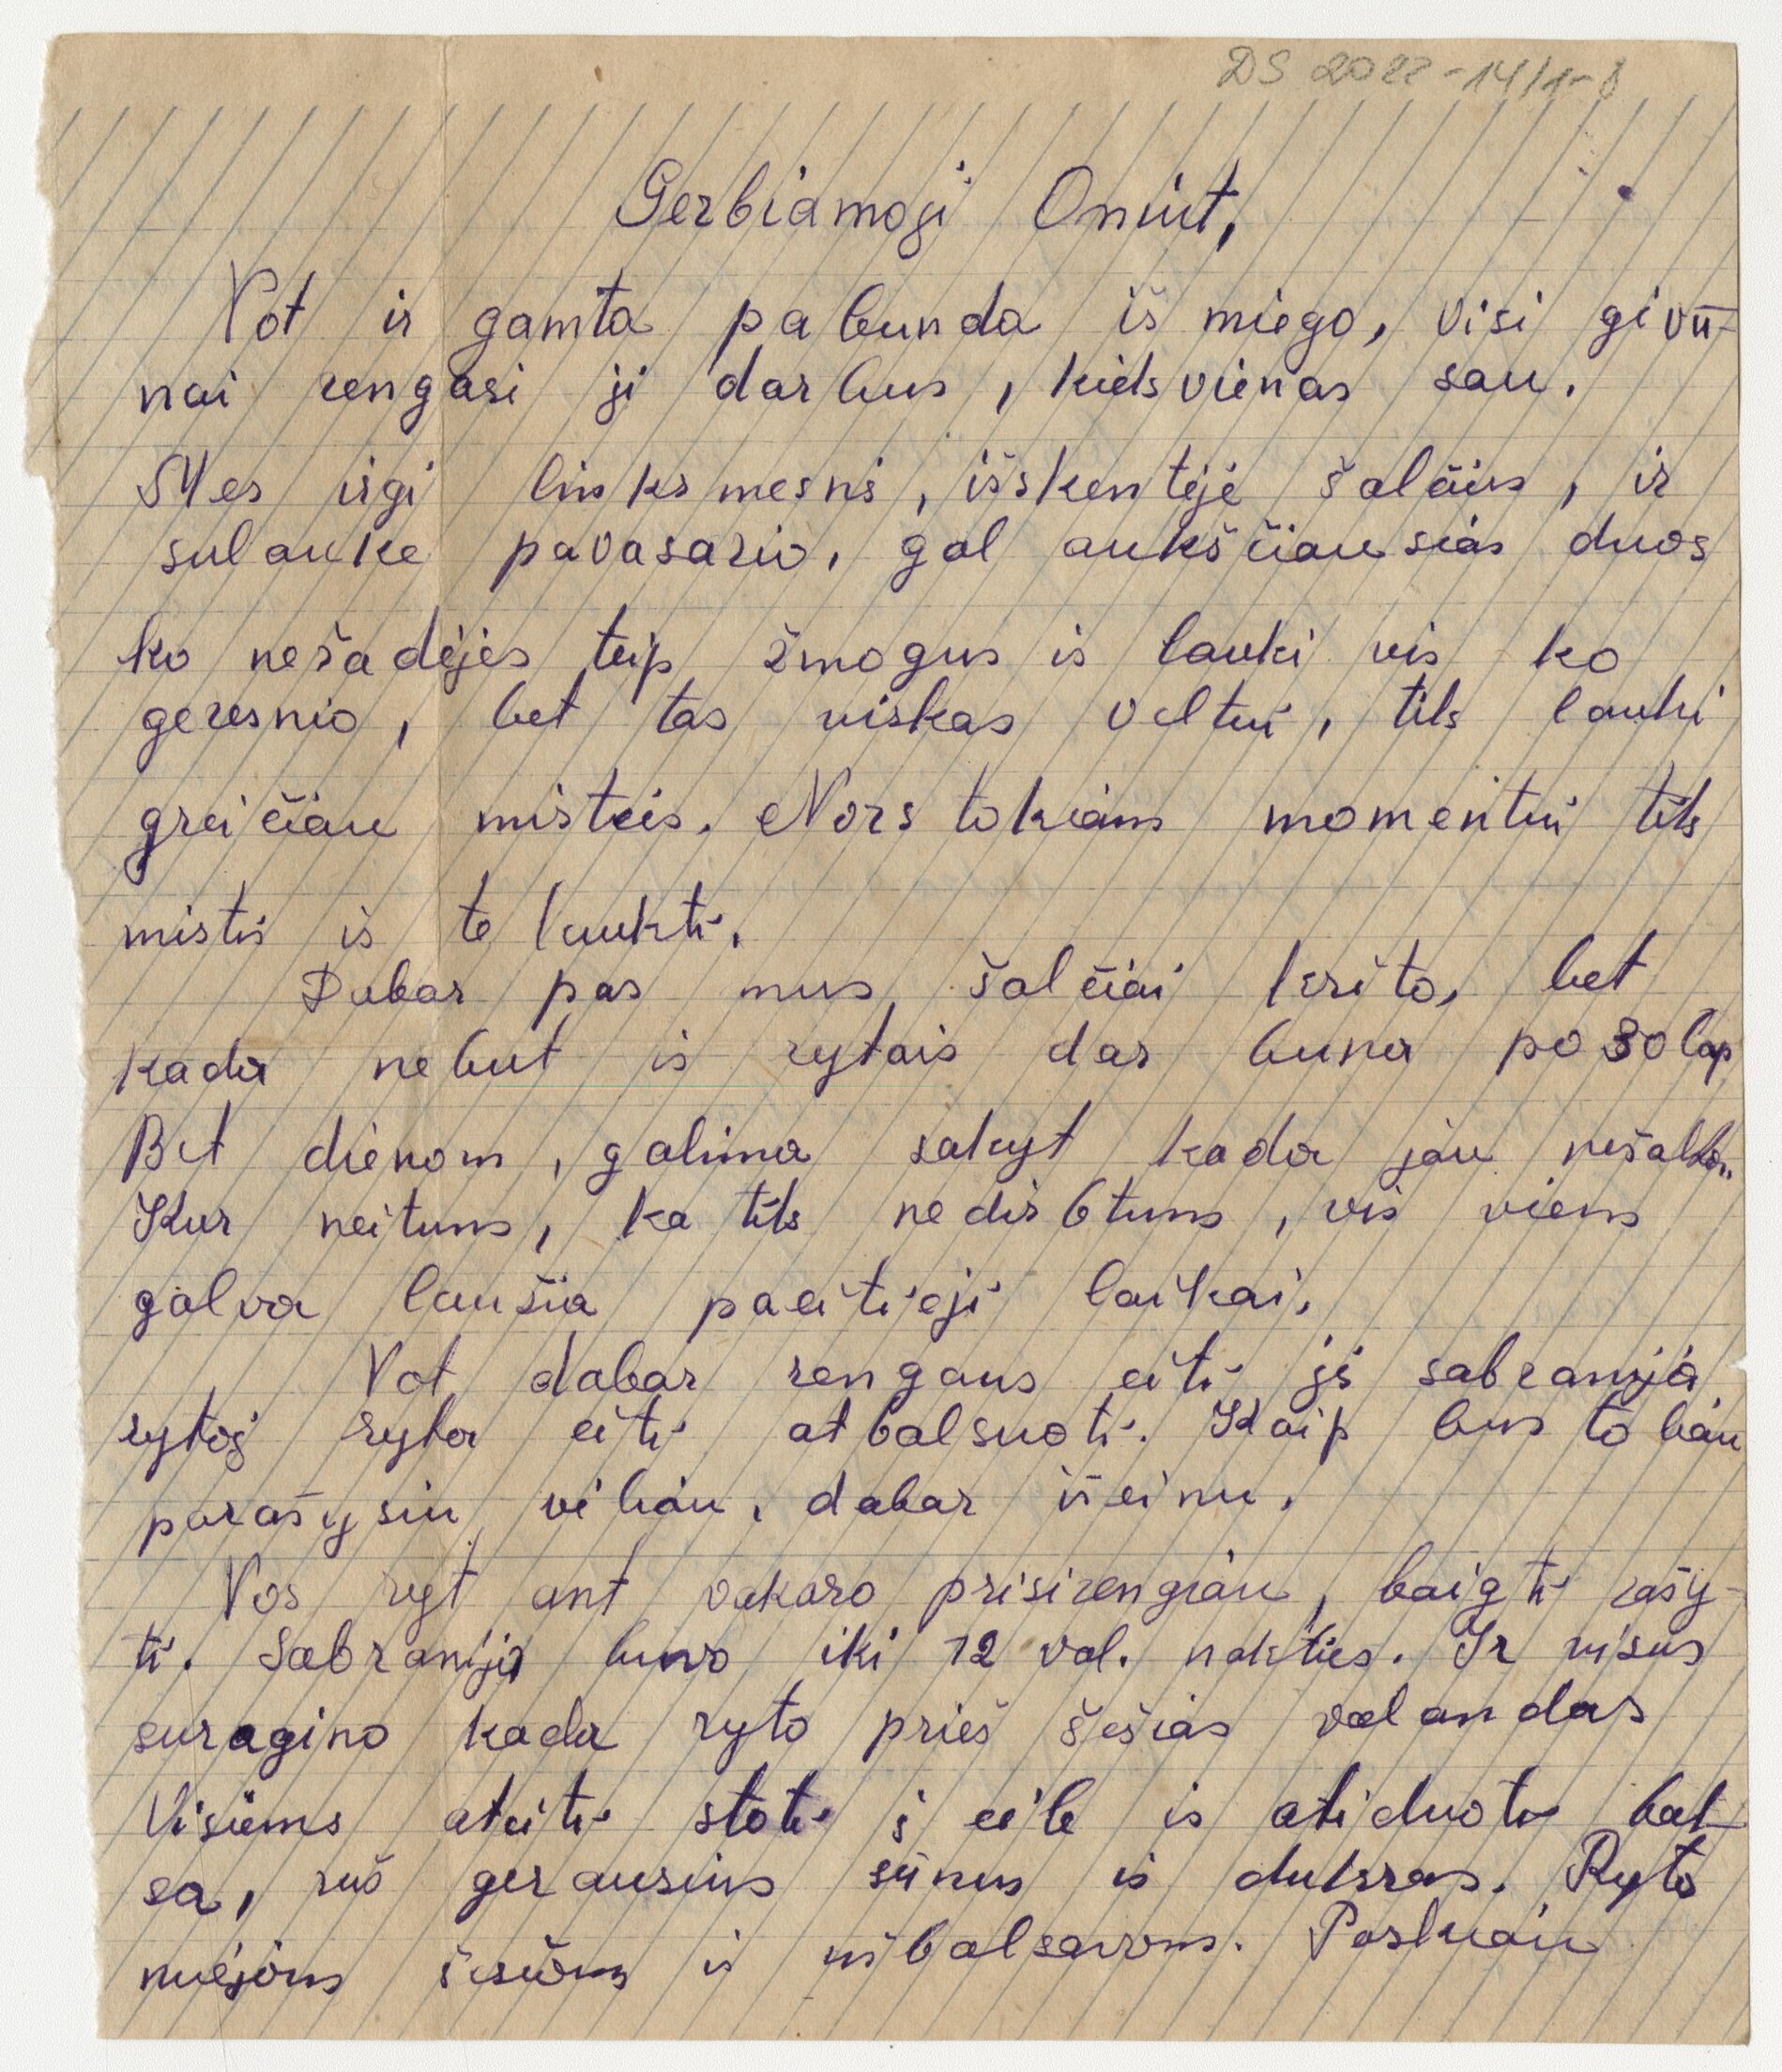 DS 2022-14/1-8
Gerbiamoji Onut,
Vot ir gamta pabunda iš miego, visi givū-
nai rengasi ji darbus, kieksvienas sau.
Mes irgi linksmesni, išškentėjė šalčius, ir
sulauke pavasario, gal aukščiausias duos
ko nešadėjės teip žmogus is lauki vis ko
geresnio, bet tas viskas veltui, tik lauki
greičiau misteis. Nors tokiam momentui tik
mistis is te laukti.
Dabar pas mus šalčiai krito, bet
kada nebut is rytais dar buna po 30 lap
Bet dienom, galima sakyt kada jau nešalta.
Kur neitum, ka tik nedirbtum, vis viens
galva laušia paeitieji laikai.
Vot dabar rengaus eiti ji sabranija
rytoj ryta eiti atbalsuoti. Kaip bus toliau
parašysiu vėliau, dabar išeinu.
Vos ryt ant vakaro prisirengiau, baigti rašy-
ti. Sabranija buvo iki 12 val. nakties. Ir visus
suragino kada ryto prieš šešias valandas
Visiems ateiti stoti į eile is atiduoti bal-
sa, už gerausius sūnus is dukras. Ryto
nuėjom šešiom is užbalsavom. Paskiau